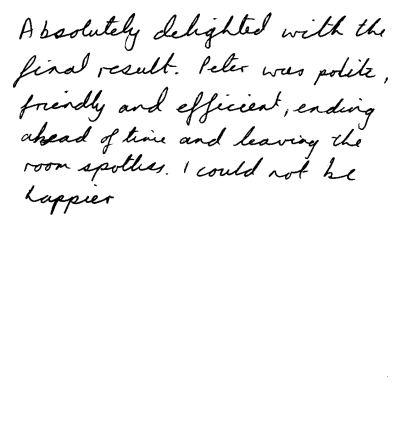 Absolutely delighted with the
final result. Peter was polite,
friendly and efficient, ending
ahead of time and leaving the
room spotless. I could not be
happier